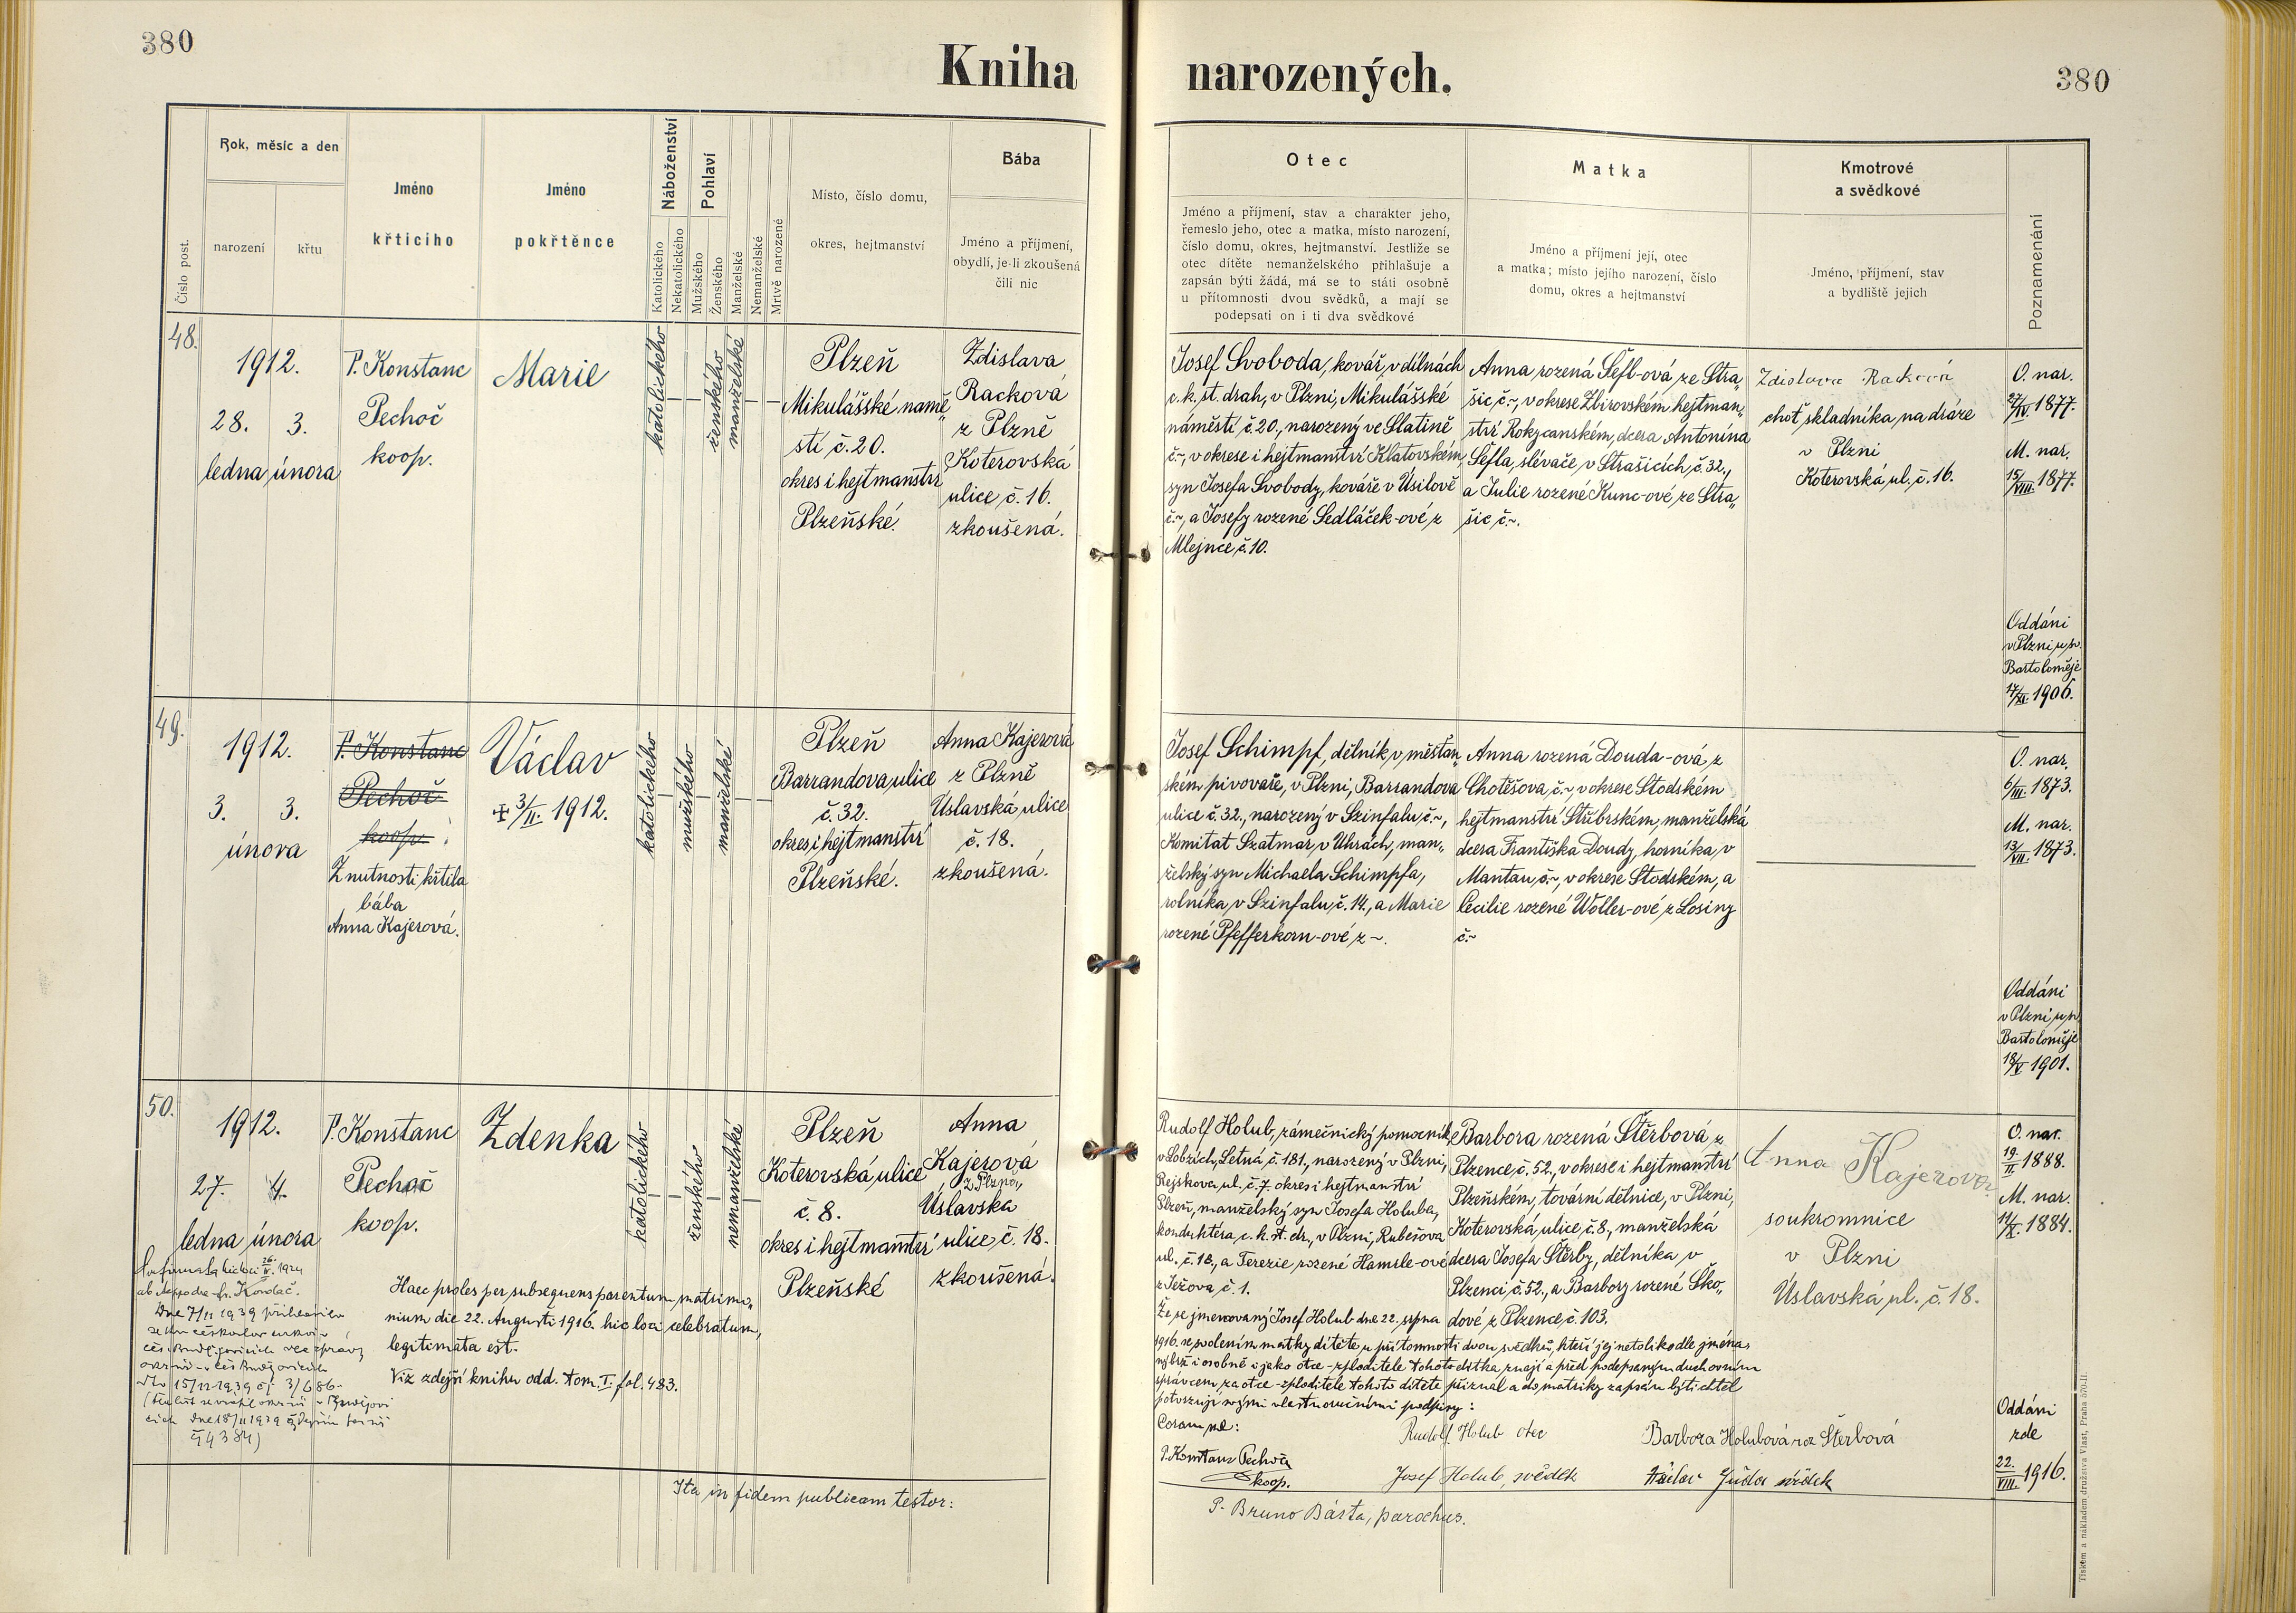 380
Kniha narozených.
380
Číslo post.
Rok, měsíc a den
narození
křtu
Jméno
křtícího
Jméno
pokřtěnce
Náboženství
Katolického
Nekatolického
Pohlaví
Mužského
Ženského
Manželské
Nemanželské
Mrtvě narozené
Místo, číslo domu,
okres, hejtmanství
Bába
Jméno a příjmení,
obydlí, je-li zkoušená
čili nic
Otec
Jméno a příjmení, stav a charakter jeho,
řemeslo jeho, otec a matka, místo narození,
číslo domu, okres, hejtmanství. Jestliže se
otec dítěte nemanželského přihlašuje a
zapsán býti žádá, má se to státi osobně
u přítomnosti dvou svědků, a mají se
podepsati on i ti dva svědkové
Matka
Jméno a příjmení její, otec
a matka; místo jejího narození, číslo
domu, okres a hejtmanství
Kmotrové
a svědkové
Jméno, příjmení, stav
a bydliště jejich
Poznamenání
48.
1912.
28. 3.
ledna února
P. Konstanc
Pechoč
koop.
Marie
katolického
ženského
manželské
Plzeň
Mikulášské namě„
stí č. 20.
okres i hejtmanství
Plzeňské.
Zdislava
Racková
z Plzně
Koterovská
ulice č. 16.
zkoušená.
Josef Svoboda, kovář v dílnách
c. k. st. drah, v Plzni, Mikulášské
náměstí č. 20., narozený ve Slatině
č.~, v okrese i hejtmanství Klatovském,
syn Josefa Svobody, kováře v Úsilově
č.~, a Josefy rozené Sedláček-ové z
Mlejnce č. 10.
Anna rozená Šefl-ová ze Stra„
šic č.~, v okrese Zbirovském hejtman„
ství Rokycanském, dcera Antonína
Šefla, slévače v Strašicích č. 32.,
a Julie rozené Kunc-ové ze Stra„
šic č.~.
Zdislava Racková
choť skladníka na dráze
v Plzni
Koterovská ul. č. 16.
O. nar.
27/IV. 1877.
M. nar.
15/VIII. 1877.
Oddáni
v Plzni u sv.
Bartoloměje
17/XI. 1906.
49.
1912.
3. 3.
února
P. Konstanc
Pechoč
koop.
Z nutnosti křtila
bába
Anna Kajerová.
Václav
✠ 3/II. 1912.
katolického
mužského
manželské
Plzeň
Barrandova ulice
č. 32.
okres i hejtmanství
Plzeňské.
Anna Kajerová
z Plzně
Úslavská ulice
č. 18.
zkoušená.
Josef Schimpf, dělník v měšťan„
ském pivovaře, v Plzni, Barrandova
ulice č. 32., narozený v Szinfalu č.~,
Komitat Szatmar v Uhrách, man„
želský syn Michaela Schimpfa,
rolníka v Szinfalu č. 14., a Marie
rozené Pfefferkorn-ové z ~.
Anna rozená Douda-ová z
Chotěšova č.~, v okrese Stodském
hejtmanství Stříbrském, manželská
dcera Františka Doudy, horníka v
Mantau č.~, v okrese Stodském, a
Cecilie rozené Woller-ové z Losiny
č.~
O. nar.
6/III. 1873.
M. nar.
13/VII. 1873.
Oddáni
v Plzni u sv.
Bartoloměje
18/V 1901.
50.
1912.
27. 4.
ledna února
P. Konstanc
Pechoč
koop.
Zdenka
katolického
ženského
nemanželské
Plzeň
Koterovská ulice
č. 8.
okres i hejtmanství
Plzeňské
Anna
Kajerová
z Plzně,
Úslavská
ulice č. 18.
zkoušená.
Dne 7/11 1939
Haec proles per subsequens parentum matrimo„
nium die 22. Augusti 1916. hic loci celebratum,
legitimata est.
Viz zdejší knihu odd. tom. I. fol. 483.
Rudolf Holub, zámečnický pomocník
v Lobzích, Letná č. 181., narozený v Plzni,
Rejskova ul. č. 7. okres i hejtmanství
Plzeň, manželský syn Josefa Holuba,
konduktéra c. k. st. dr., v Plzni, Rubešova
ul. č. 18., a Terezie rozené Hamrle-ové
z Ježova č. 1.
Že se jmenovaný Josef Holub dne 22. srpna
1916. se svolením matky dítěte u přítomnosti dvou svědků, kteří jej netoliko dle jména,
nýbrž i osobně i jako otce - zploditele tohoto dítka znají a před podepsaným duchovním
správcem za otce - zploditele tohoto dítěte přiznal a do matriky zapsán býti chtěl
potvrzují svými vlastnoručními podpisy:
Coram me:
P. Konstanc Pechoč
koop.
Rudolf Holub otec
Josef Holub, svědek
Barbora rozená Štěrbová z
Plzence č. 52., v okrese i hejtmanství
Plzeňském, tovární dělnice, v Plzni,
Koterovská ulice č. 8., manželská
dcera Josefa Štěrby, dělníka v
Plzenci č. 52., a Barbory rozené Ško„
dové z Plzence č. 103.
Barbora Holubová roz Štěrbová
Václav svědek
Anna Kajerová
soukromnice
v Plzni
Úslavská ul. č. 18.
O. nar.
19/II. 1888.
M. nar.
14/X. 1884.
Oddáni
zde
22./VIII. 1916.
Ita in fidem publicam testor:
P. Bruno Bárta, parochus.
Tiskem a nákladem družstva Vlast, Praha 570-II.